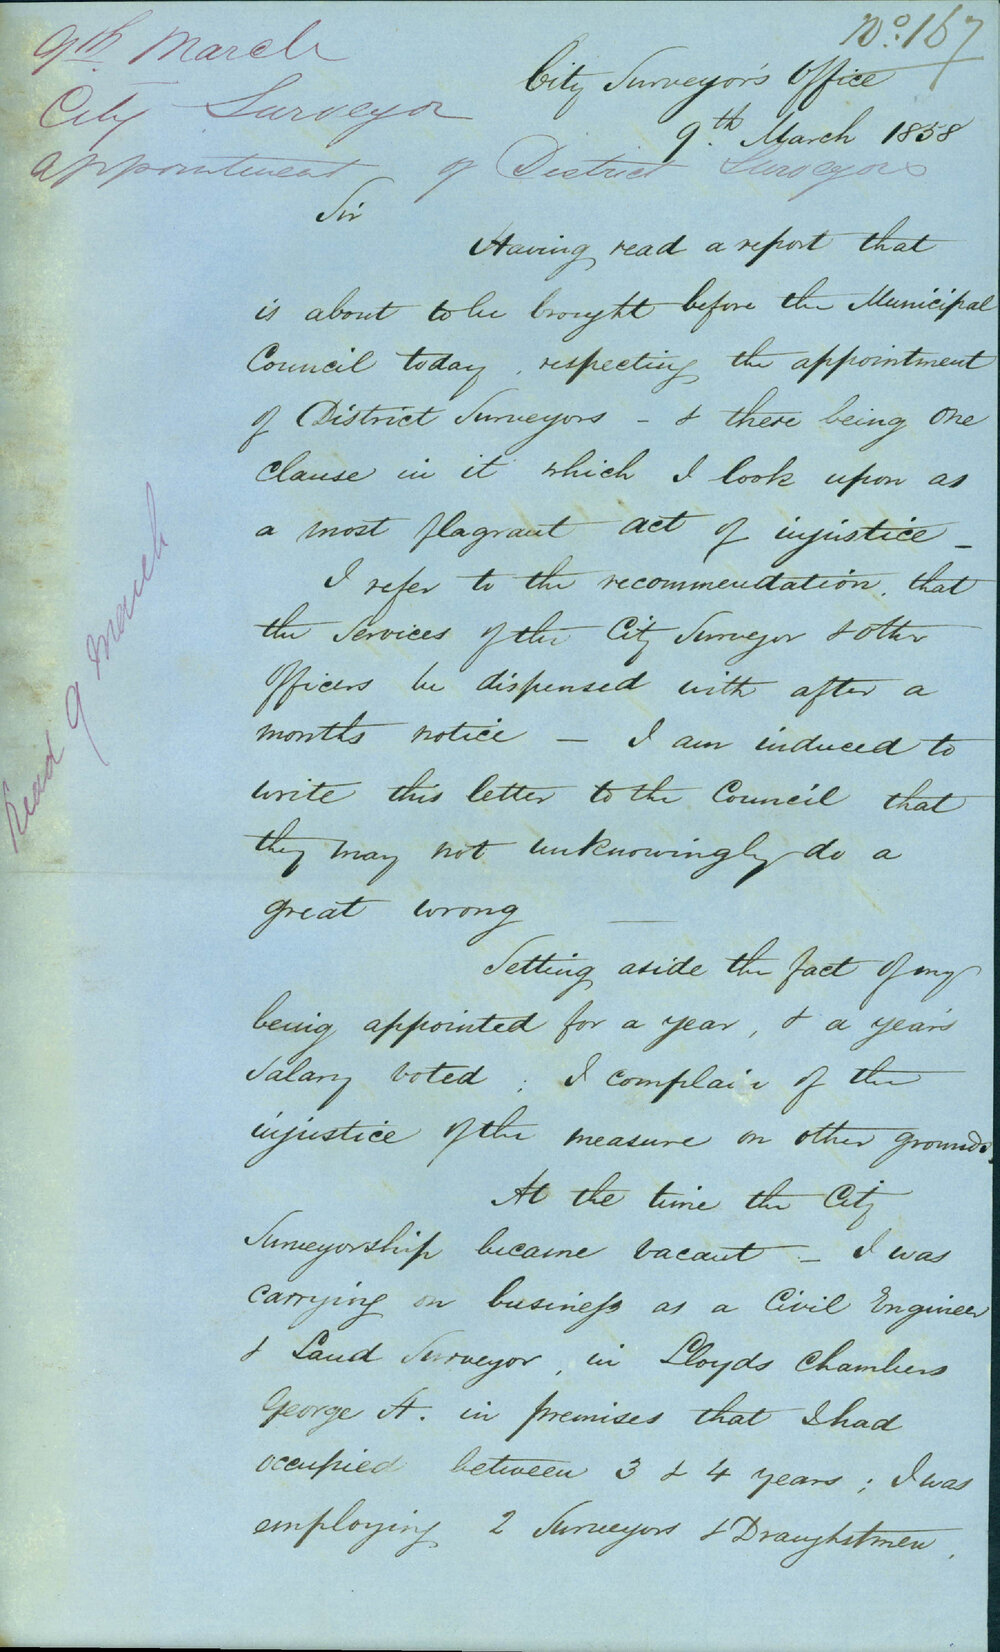 No. 167
9th March
City Surveyor
appointment of District Surveyors
City Surveyor's Office
9th. March 1858
Sir
Having read a report that
is about to be brought before the Municipal
Council today, respecting the appointment
of District Surveyors - & there being one
clause in it which I look upon as
a most flagrant act of injustice -
I refer to the recommendation, that
the Services of the City Surveyor & other
Officers be dispensed with after a
months notice - I am induced to
write this letter to the Council that
they may not unknowingly do a
great wrong
Setting aside the fact of my
being appointed for a year, & a year's
Salary voted; I complain of the
injustice of the measure on other grounds.
At the time the City
Surveyorship became vacant - I was
carrying on business as a Civil Engineer
& Land Surveyor, in Lloyds Chambers
George St. in premises that I had
occupied between 3 & 4 years; I was
employing 2 Surveyors & Draughtsmen,
Read 9 March